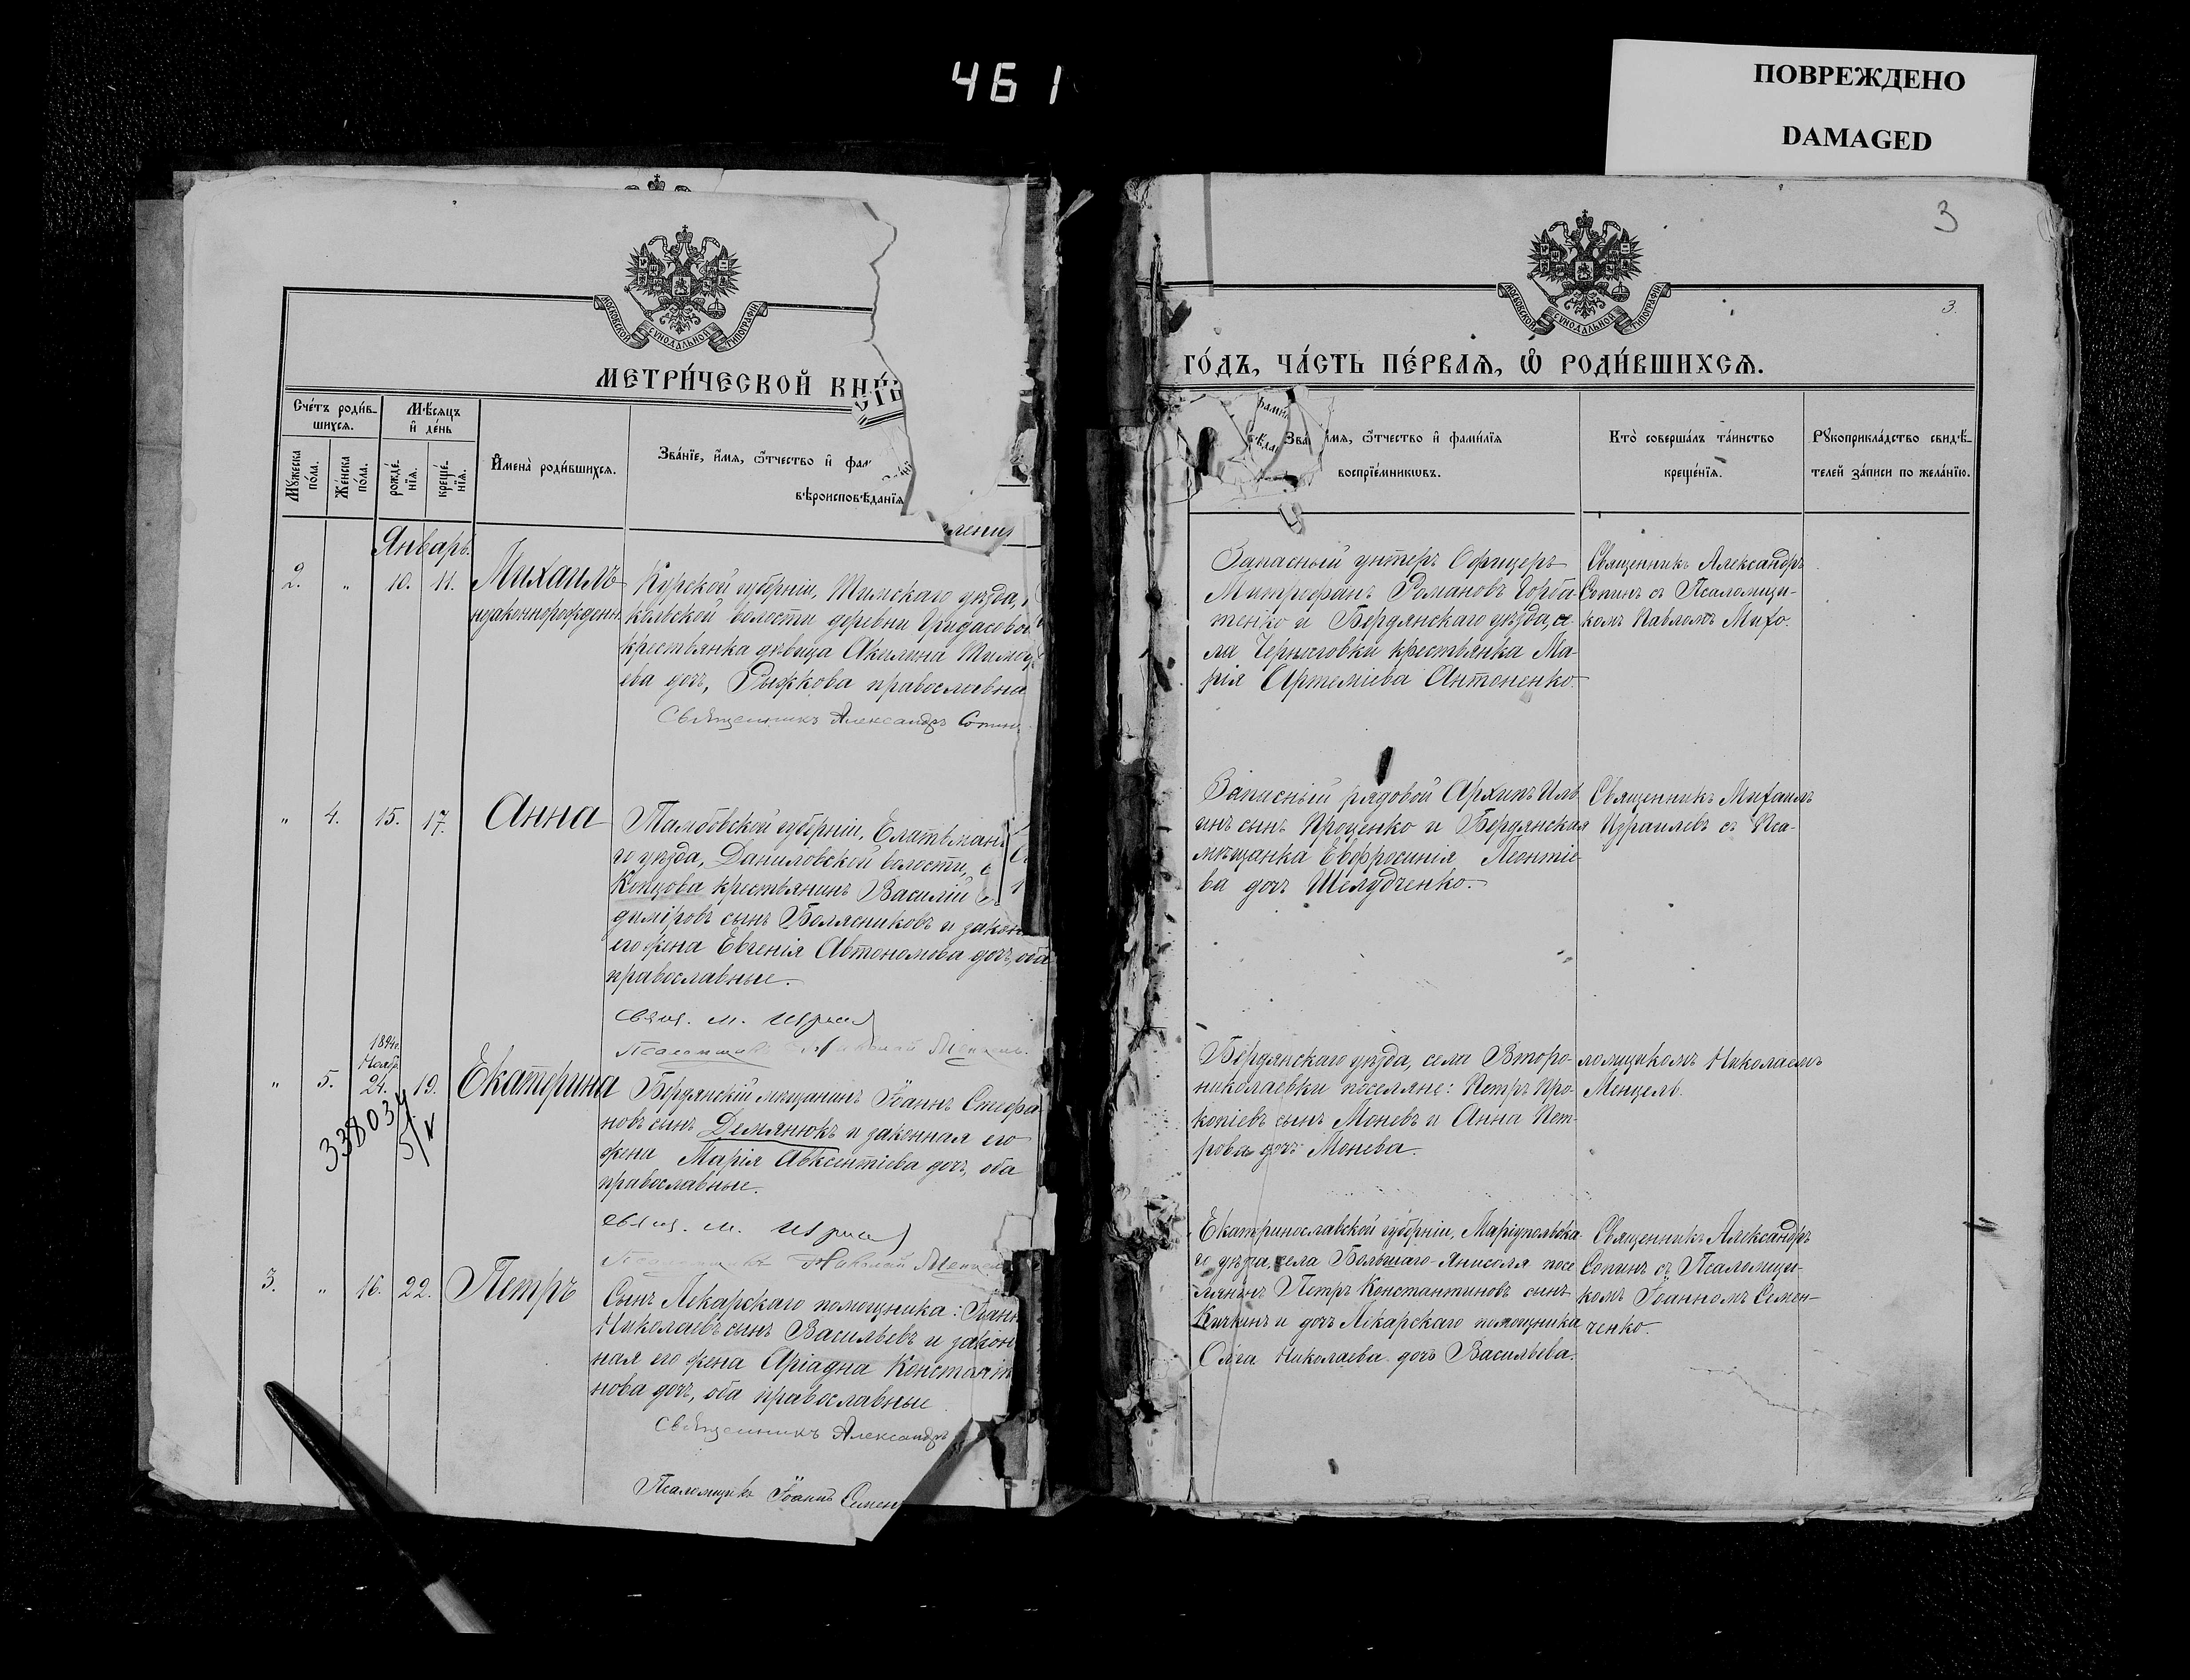 461
ПОВРЕЖДЕНО
DAMAGED
3
3.
МОСКОВСКОЙ СУНОДАЛЬНОЙ ТИПОГРАФІИ
МЕТРИ́ЧЕСКОЙ КНИ́
Сче́тъ роди́в-
шихсѧ.
Мѣ́сѧцъ
и҆ де́нь
Мꙋ́жеска
по́ла.
Же́нска
по́ла.
рожде́-
нїѧ.
креще́-
нїѧ.
И҆мена̀ роди́вшихсѧ.
Зва́нїе, и҆́мѧ, ѻ҆́тчество и҆ фам
вѣроисповѣ́данїѧ
Январь.
2. „ 10. 11. Михаилъ
незаконнорожденн
Курской губерніи, Тимскаго уѣзда,
кольской волости деревни Гридасовой
крестьянка дѣвица Акилина Тимоѳ
ева дочь, Рыжкова православна
Священникъ Александръ Сопин
„ 4. 15. 17. Анна
Тамбовской губерніи, Елатьманс
го уѣзда, Даниловской волости, с
Копцова крестьянинъ Василій
диміровъ сынъ Болясниковъ и закон
его жена Евгенія Автономова дочь, оба
православные.
Свящ. М. Израил
Псаломщикъ Николай Менцель.
1894г.
Ноябр.
„ 5. 24. 19. Екатерина
338034
5/V
Бердянскій мѣщанинъ Іоаннъ Стефа
новъ сынъ Демянюкъ и законная его
жена Марія Авксентіева дочь, оба
православные.
Свящ. М. Израил
Псаломщикъ Николай Менцель
3. „ 16. 22. Петръ
Сынъ Лекарскаго помощника: Іоанн
Николаевъ сынъ Васильевъ и закон
ная его жена Аріадна Констант
нова дочь, оба православные
Священникъ Александръ
Псаломщикъ Іоаннъ Семен
МОСКОВСКОЙ СУНОДАЛЬНОЙ ТИПОГРАФІИ
ГО́ДЪ, ЧА́СТЬ ПЕ́РВАѦ, Ѡ҆ РОДИ́ВШИХСѦ.
Зва и҆́мѧ, ѻ҆́тчество и҆ фами́лїѧ
воспрїе́мникѡвъ.
Кто̀ соверша́лъ та́инство
креще́нїѧ.
Рꙋкоприкла́дство свидѣ́-
телей за́писи по жела́нїю.
Запасный унтеръ Офицеръ
Митрофанъ Романовъ Горба-
тенко и Бердянскаго уѣзда, се
ла Черниговки крестьянка Ма-
рія Артеміева Антоненко.
Священникъ Александръ
Сопинъ съ Псаломщи-
комъ Павломъ Михо.
Запасный рядовой Архипъ Иль
инъ сынъ Проценко и Бердянская
мѣщанка Евфросинія Леонтіе-
ва дочь Шелудченко.
Священникъ Михаилъ
Израилевъ съ Пса-
Бердянскаго уѣзда, села Второ-
николаевки поселяне: Петръ Про-
копіевъ сынъ Моневъ и Анна Пет-
рова дочь Монева.
ломщикомъ Николаемъ
Менцель.
Екатеринославской губерніи, Маріупольска
го уѣзда, села Большаго-Янисоля посе
лянинъ Петръ Константиновъ сынъ
Кичкинъ и дочь Лѣкарскаго помощника
Ольга Николаева дочь Васильева.
Священникъ Александръ
Сопинъ съ Псаломщи-
комъ Іоанномъ Семен-
ченко.